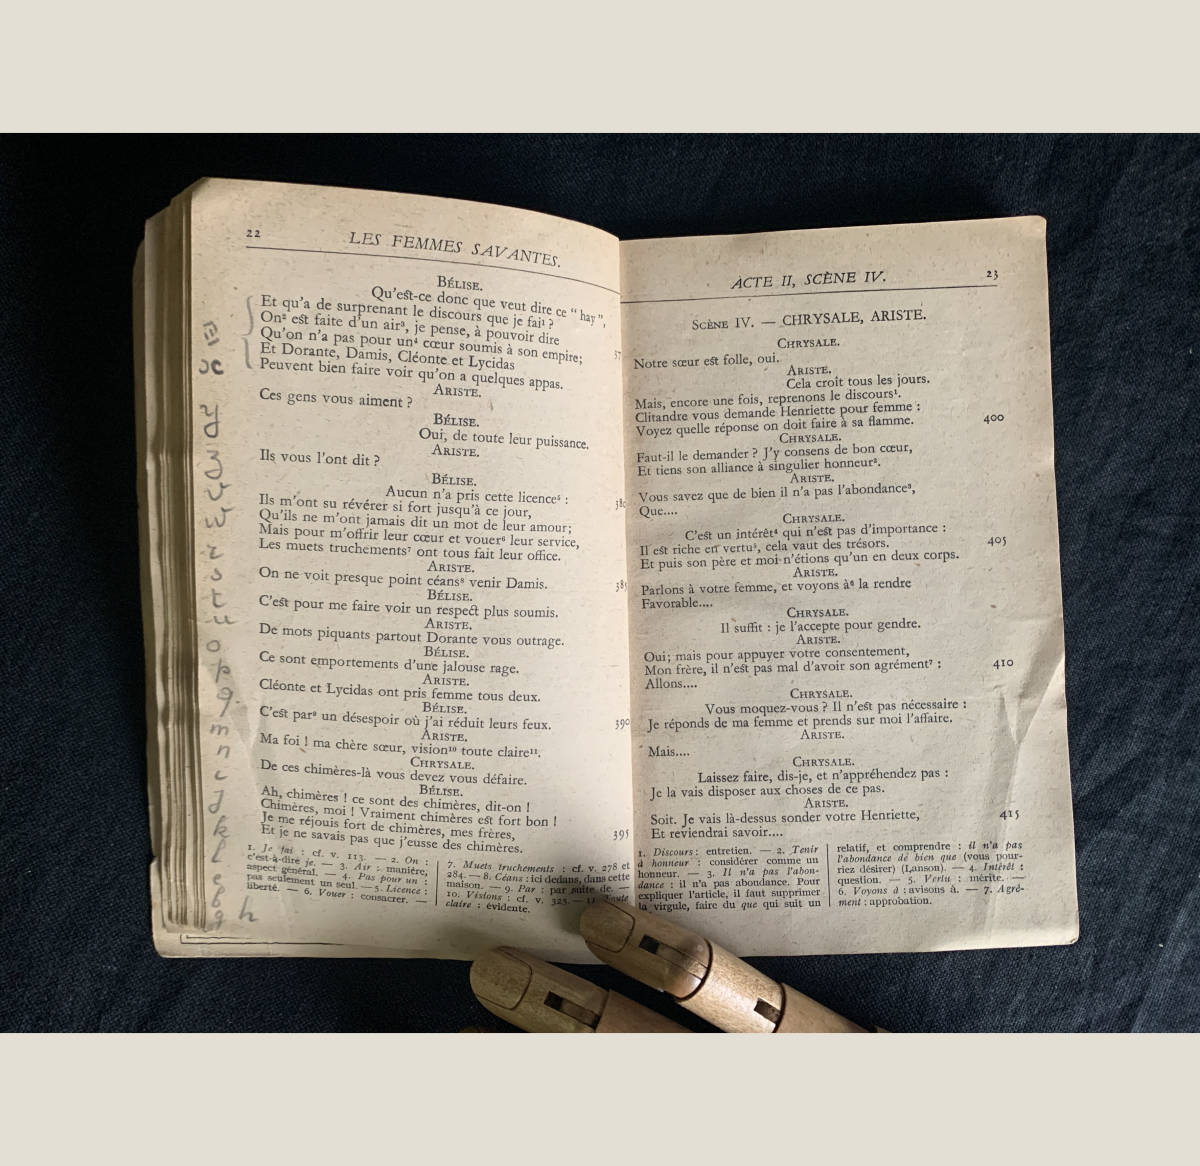 22
LES FEMMES SAVANTES.
BÉLISE.
Qu'est-ce donc que veut dire ce “ hay ”,
Et qu'a de surprenant le discours que je fai¹ ?
On² est faite d'un air³, je pense, à pouvoir dire
Qu'on n'a pas pour un⁴ cœur soumis à son empire;
Et Dorante, Damis, Cléonte et Lycidas
Peuvent bien faire voir qu'on a quelques appas.
ARISTE.
Ces gens vous aiment ?
BÉLISE.
Oui, de toute leur puissance.
ARISTE.
Ils vous l'ont dit ?
BÉLISE.
Aucun n'a pris cette licence⁵ :
Ils m'ont su révérer si fort jusqu'à ce jour,
Qu'ils ne m'ont jamais dit un mot de leur amour;
Mais pour m'offrir leur cœur et vouer⁶ leur service,
Les muets truchements⁷ ont tous fait leur office.
ARISTE.
On ne voit presque point céans⁸ venir Damis. 385
BÉLISE.
C'est pour me faire voir un respect plus soumis.
ARISTE.
De mots piquants partout Dorante vous outrage.
BÉLISE.
Ce sont emportements d'une jalouse rage.
ARISTE.
Cléonte et Lycidas ont pris femme tous deux.
BÉLISE.
C'est par⁹ un désespoir où j'ai réduit leurs feux. 390
ARISTE.
Ma foi ! ma chère sœur, vision¹⁰ toute claire¹¹.
CHRYSALE.
De ces chimères-là vous devez vous défaire.
BÉLISE.
Ah, chimères ! ce sont des chimères, dit-on !
Chimères, moi ! Vraiment chimères est fort bon !
Je me réjouis fort de chimères, mes frères, 395
Et je ne savais pas que j'eusse des chimères.
1. Je fai : cf. v. 113. — 2. On :
c'est-à-dire je. — 3. Air : manière,
aspect général. — 4. Pas pour un :
pas seulement un seul. — 5. Licence :
liberté. — 6. Vouer : consacrer. —
7. Muets truchements : cf. v. 278 et
284. — 8. Céans : ici dedans, dans cette
maison. — 9. Par : par suite de. —
10. Visions : cf. v. 325. — 11. Toute
claire : évidente.
x
r
s
t
u
o
p
q
m
n
k
h
ACTE II, SCÈNE IV.
23
SCÈNE IV. — CHRYSALE, ARISTE.
CHRYSALE.
Notre sœur est folle, oui.
ARISTE.
Cela croît tous les jours.
Mais, encore une fois, reprenons le discours¹.
Clitandre vous demande Henriette pour femme : 400
Voyez quelle réponse on doit faire à sa flamme.
CHRYSALE.
Faut-il le demander ? J'y consens de bon cœur,
Et tiens son alliance à singulier honneur².
ARISTE.
Vous savez que de bien il n'a pas l'abondance³,
Que....
CHRYSALE.
C'est un intérêt⁴ qui n'est pas d'importance :
Il est riche en vertu⁵, cela vaut des trésors. 405
Et puis son père et moi n'étions qu'un en deux corps.
ARISTE.
Parlons à votre femme, et voyons à⁶ la rendre
Favorable....
CHRYSALE.
Il suffit : je l'accepte pour gendre.
ARISTE.
Oui; mais pour appuyer votre consentement,
Mon frère, il n'est pas mal d'avoir son agrément⁷ ; 410
Allons....
CHRYSALE.
Vous moquez-vous ? Il n'est pas nécessaire :
Je réponds de ma femme et prends sur moi l'affaire.
ARISTE.
Mais....
CHRYSALE.
Laissez faire, dis-je, et n'appréhendez pas :
Je la vais disposer aux choses de ce pas.
ARISTE.
Soit. Je vais là-dessus sonder votre Henriette, 415
Et reviendrai savoir....
1. Discours : entretien. — 2. Tenir
à honneur : considérer comme un
honneur. — 3. Il n'a pas l'abon-
dance : il n'a pas abondance. Pour
expliquer l'article, il faut supprimer
la virgule, faire du que qui suit un
relatif, et comprendre : il n'a pas
l'abondance de bien que (vous pour-
riez désirer) (Lanson). — 4. Intérêt :
question. — 5. Vertu : mérite. —
6. Voyons à : avisons à. — 7. Agré-
ment : approbation.